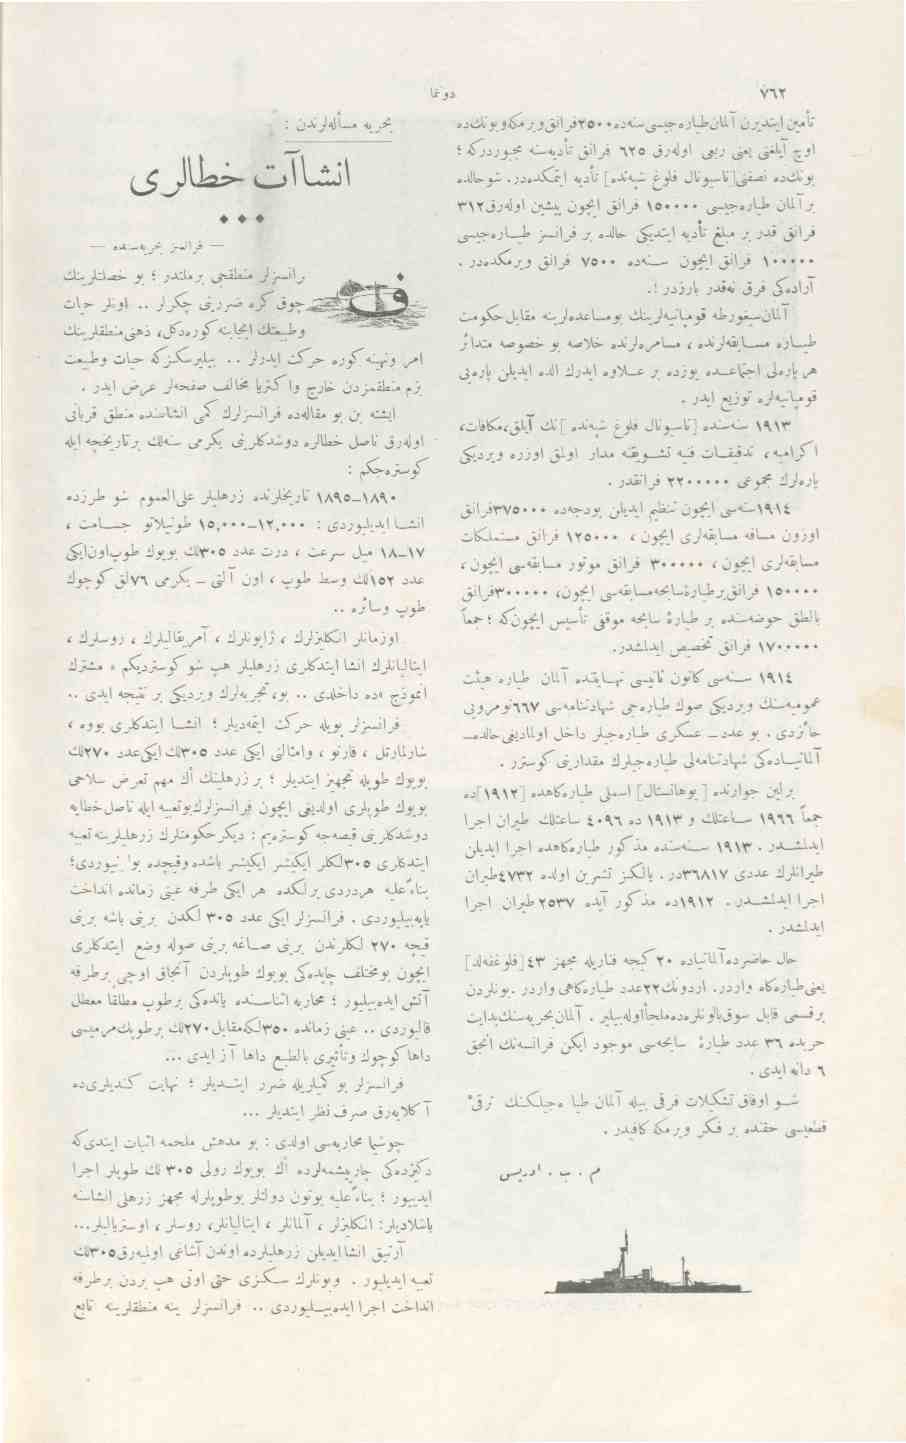 ٧٦٢
دوننما
تأمین ایتدیرن آلمان طیاره‌جیسی سنه‌ده ٢٥٠٠ فرانق ویرمکده و بونك ده
اوچ آیلغنی یعنی ربعی اوله‌رق ٦٢٥ فرانق تأدیه‌سنه مجبوردركه ؛
بونك‌ده نصفنی [ناسیونال فلوغ شپه‌نده] تأدیه ایتمکده‌در. شو حالده
بر آلمان طیاره‌جیسی ١٥٠٠٠٠ فرانق ایچون پیشین اوله‌رق ٣١٢
فرانق قدر بر مبلغ تأدیه ایتدیکی حالده بر فرانسز طیــاره‌جیسی
١٠٠٠٠٠ فرانق ایچون ســنه‌ده ٧٥٠٠ فرانق ویرمکده‌در .
آراده‌کی فرق نه‌قدر بارزدر !.
آلمان سیغورطه قومپانیه‌لرینك بو مساعده‌لرینه مقابل حکومت
طیــاره مســابقه‌لرنده ، مسامره‌لرنده خلاصه بو خصوصه متدائر
هر پاره‌لی اجتماعــده یوزده بر عــلاوه ایدرك الده ایدیلن پاره‌یی
قومپانیه‌لره توزیع ایدر .
١٩١٣ سنه‌سنده [ناسیونال فلوغ شپه‌نده ] نك آیلق، مکافات،
اکرامیه ، تدقیقــات فنیه تشــویقنه مدار اولمق اوزره ویردیکی
پاره‌لرك مجموعی ٢٢٠٠٠٠٠ فرانقدر .
١٩١٤ سنه‌سی ایچون تنظیم ایدیلن بودجه‌ده ٣٧٥٠٠٠ فرانق
اوزون مسافه مسابقه‌لری ایچون ، ١٢٥٠٠٠ فرانق مستملکات
مسابقه‌لری ایچون ، ٣٠٠٠٠٠ فرانق موتور مسابقه‌سی ایچون ،
١٥٠٠٠٠ فرانق بر طیارهٔ سابحه مسابقه‌سی ایچون، ٣٠٠٠٠٠ فرانق
بالطق حوضه‌سنده بر طیارهٔ سابحه موقفی تأسیس ایچون‌که ؛ جمعاً
١٧٠٠٠٠٠ فرانق تخصیص ایدلمشدر.
١٩١٤ ســنه‌سی کانون ثانیسی نهــایتنده آلمان طیاره هیئت
عمومیه‌ســنك ویردیکی صوك طیاره‌جی شهادتنامه‌سی ٦٦٧ نومرویی
حائزدی . بو عدد ـ عسکری طیاره‌جیلر داخل اولمادیغی حالده ـ
آلمانیــاده‌کی شهادتنامه‌لی طیاره‌جیلرك مقدارینی کوسترر .
برلین جوارنده [ یوهانستال ] اسملی طیاره‌کاهده [١٩١٢] ده
جمعاً ١٩٦٦ ســاعتلك و ١٩١٣ ده ٤٠٩٦ ساعتلك طیران اجرا
ایدلمشــدر . ١٩١٣ ســنه‌سنده مذکور طیاره‌کاهده اجرا ایدیلن
طیرانلرك عددی ٣٦٨١٧ در. یالکز تشرین اولده ٤٧٣٢ طیران
اجرا ایدلمشــدر . ١٩١٢ ده مذکور آیده ٢٥٣٧ طیران اجرا
ایدلمشدر .
حال حاضرده آلمانیاده ٢٠ کیجه فناریله مجهز ٤٣ [فلوغفه‌لد]
یعنی طیاره‌کاه واردر. اردونك ٢٢ عدد طیاره‌کاهی واردر. بونلردن
بر قسمی قابل سوق بالونلره‌ده ملجأ اوله‌بیلیر . آلمان بحریه‌سنك بدایت
حربده ٣٦ عدد طیارهٔ سابحه‌سی موجود ایکن فرانسه‌نك انجق
٦ دانه ایدی .
شــو اوفاق تشکیلات فرقی بیله آلمان طیا ه‌جیلکنك ترقئ
قطعیسی حقنده بر فکر ویرمکه کافیدر .
م . ب . ادریس
بحریه مسأله‌لرندن :
انشاآت خطالری
— فرانسز بحریه‌سنده —
فرانسزلر منطقجی بر ملتدر ؛ بو خصلتلرینك
چوق کره ضررینی چکرلر .. اونلر حیات
وطبیعتك ایجاباتنه کوره‌دکل، ذهنی منطقلرینك
امر ونهینه کوره حرکت ایدرلر .. بیلیرسکزکه حیات وطبیعت
بزم منطقمزدن خارج واکثریا مخالف صفحه‌لر عرض ایدر .
ایشته بن بو مقاله‌ده فرانسزلرك کمی انشاءسنده منطق قربانی
اوله‌رق ناصل خطالره دوشدکلرینی یکرمی سنه‌لك بر تاریخچه ایله
کوستره‌جکم :
١٨٩٠ـ١٨٩٥ تاریخلرنده زرهلیلر علی‌العموم شو طرزده
انشــا ایدیلیوردی : ١٢,٠٠٠ـ١٥,٠٠٠ طونیلاتو جســامت ،
١٧ـ١٨ میل سرعت ، درت عدد ٣٠٥ لك بویوك طوپ اون‌ایکی
عدد ١٥٢ لك وسط طوپ ، اون آلتی ـ یکرمی ٧٦ لق کوچوك
طوپ وسائره ..
اوزمانلر انکلیزلرك ، ژاپونلرك ، آمریقالیلرك ، روسلرك ،
ایتالیانلرك انشا ایتدکلری زرهلیلر هپ شو کوستردیکم « مشترك
انموذج »ه داخلدی .. بو، تجربه‌لرك ویردیکی بر نتیجه ایدی ..
فرانسزلر بویله حرکت ایتمه‌دیلر ؛ انشــا ایتدکلری بووه ،
شارلمارتل ، قارنو ، وامثالنی ایکی عدد ٣٠٥ لك ایکی عدد ٢٧٠ لك
بویوك طوپله تجهیز ایتدیلر ؛ بر زرهلینك اك مهم تعرض سلاحی
بویوك طوپلری اولدیغی ایچون فرانسزلرك بو تعبیه ایله ناصل خطایه
دوشدکلرینی قیصه‌جه کوستره‌یم : دیکر حکومتلرك زرهلیلرینه تعبیه
ایتدکلری ٣٠٥ لکلر ایکیشر ایکیشر باشده وقیچده بولنیوردی؛
بناءً علیه هر دردی برلکده هر ایکی طرفه عینی زمانده انداخت
یاپه‌بیلیوردی . فرانسزلر ایکی عدد ٣٠٥ لکدن برینی باشه برینی
قیچه ٢٧٠ لکلرندن برینی صــاغه برینی صوله وضع ایتدکلری
ایچون بو مختلف چاپده‌کی بویوك طوپلردن آنجاق اوچی بر طرفه
آتش ایده‌بیلیور ؛ محاربه اثناســنده یانده‌کی بر طوپ مطلقا معطل
قالیوردی .. عینی زمانده ٣٥٠ لکه مقابل ٢٧٠ لك بر طوپك مرمیسی
داها کوچوك وتأثیری بالطبع داها آز ایدی ...
فرانسزلر بو کمیلریله ضرر ایتــدیلر ؛ نهایت کنــدیلری‌ده
آکلایه‌رق صرف نظر ایتدیلر ...
چوشیما محاربه‌سی اولدی : بو مدهش ملحمه اثبات ایتدی‌که
دکزده‌کی چارپیشمه‌لرده اك بویوك رولی ٣٠٥ لك طوپلر اجرا
ایدییور ؛ بناءً علیه بوتون دولتلر بو طوپلرله مجهز زرهلی انشاسنه
باشلادیلر: انکلیزلر ، آلمانلر ، ایتالیانلر، روسلر ، اوستریالیلر...
آرتیق انشا ایدیلن زرهلیلرده اوندن آشاغی اولمیه‌رق ٣٠٥ لك
تعبیه ایدیلیور . وبونلرك ســکزی حتی اونی هپ بردن بر طرفه
انداخت اجرا ایده‌بیــلیوردی .. فرانسزلر ینه منطقلرینه تابع